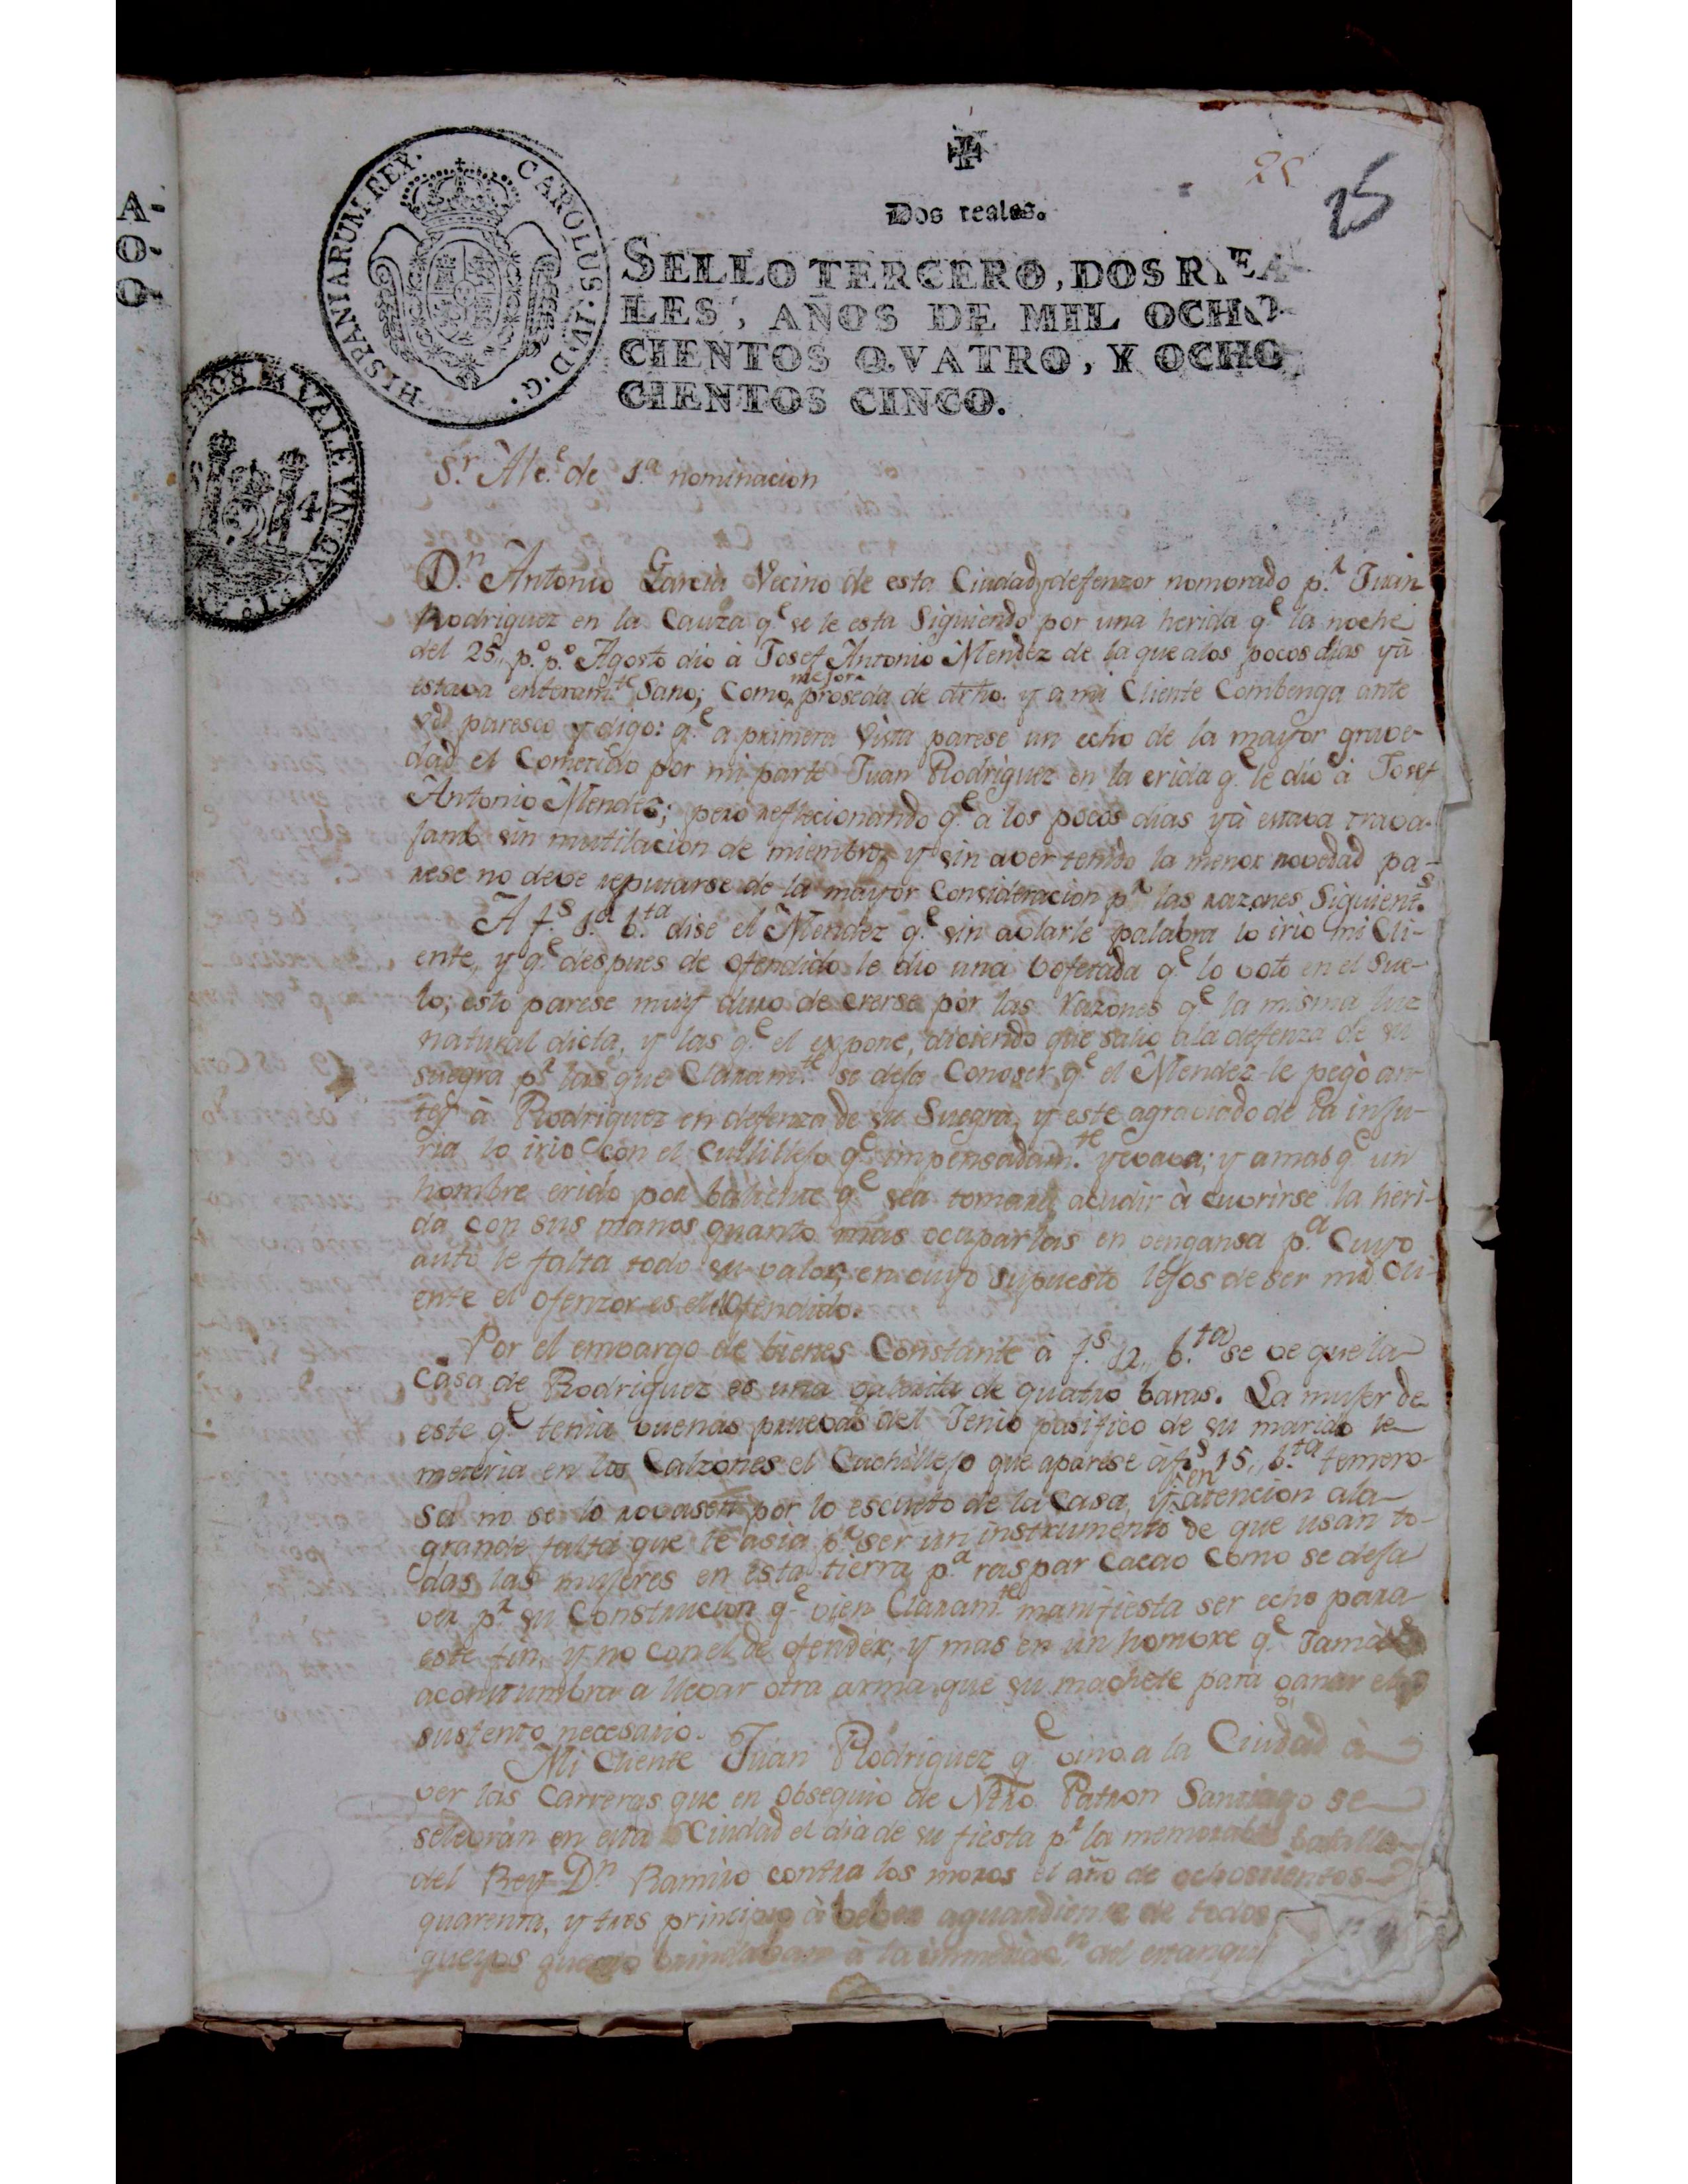 A-
O-
O-
HISPANIARUM·REX· CAROLUS·IV·D·G·
VALE
4
✠
Dos reales.
25
SELLO TERCERO, DOS REA
LES, AÑOS DE MIL OCHO
CIENTOS QVATRO, Y OCHO
CIENTOS CINCO.
S.r Alc.e de 1.a nominacion
D.n Antonio Garcia Vecino de esta Ciudad, y defenzor nomorado p.r Juan
Rodriguez en la Cauza q.e se le esta Siguiendo por una herida q.e la noche
del 25,, p.o p.o Agosto dio à Josef Antonio Mendez de la que alos pocos dias yà
estava enteram.te Sano; Como mejor proseda de dr̃ho. y a mi Cliente Combenga ante
paresco y digo: q.e a primera vista parese un echo de la mayor grave-
dad el Cometido por mi parte Juan Rodriguez en la erida q.e le dio à Josef
Antonio Mendez; pero reflecionando q.e a los pocos dias yà estava trava-
jando sin mutilacion de miembro, y sin aver tenido la menor novedad pa-
rese no deve reputarse de la mayor Consideracion p.r las razones Siguient.s
A f.s 1.a b.ta dise el Mendez q.e sin ablarle palabra lo irio mi Cli-
ente,, y q.e despues de ofendido le dio una bofetada q.e lo voto en el Sue-
lo; esto parese muy duro de crerse por las razones q.e la misma luz
natural dicta, y las q.e el expone, diciendo que salio ala defenza de su
suegra p.r las que Claram.te se deja Conoser q.e el Mendez le pegò an-
tes à Rodriguez en defenza de su Suegra, y este agraviado de la inju-
ria lo irio con el Cullillejo q.e impensadam.te yevava; y amas q.e un
hombre erido por baliente q.e sea tomara acudir à cuvrirse la heri-
da con sus manos quanto mas ocuparlas en vengansa p.a Cuyo
auto le falta todo su valor; en cuyo supuesto lejos de ser mi Cli-
ente el ofenzor es el ofendido.
Por el embargo de bienes Constante à f.s 12,, b.ta se ve que la
Casa de Rodriguez es una de quatro baras. La mujer de
este q.e tenia buenas pruevas del Jenio pasifico de su marido le
meteria en los Calzones el Cuchillejo que aparese à f.s 15,, b.ta temero-
sa no se lo rovasen por lo escueto de la Casa, y en atencion ala
grande falta que le asia p.r ser un instrumento de que usan to-
das las mujeres en esta tierra p.a raspar Cacao Como se deja
ver p.r su Construcion q.e vien Claram.te manifiesta ser echo para
este fin, y no con el de ofender, y mas en un hombre q.e Jamàs
acontumbra a llevar otra arma que su machete para ganar el
sustento necesario.
Mi Cliente Juan Rodriguez q.e vino a la Ciudad à
ver las Carreras que en obsequio de Ntro. Patron Santiago se
selebran en esta Ciudad el dia de su fiesta p.r la memorable batalla
del Rey D.n Ramiro contra los moros el año de ochosientos
quarenta, y tres principio à beber aguardiente de todos
brindaban à la inmediac.n del estanqui